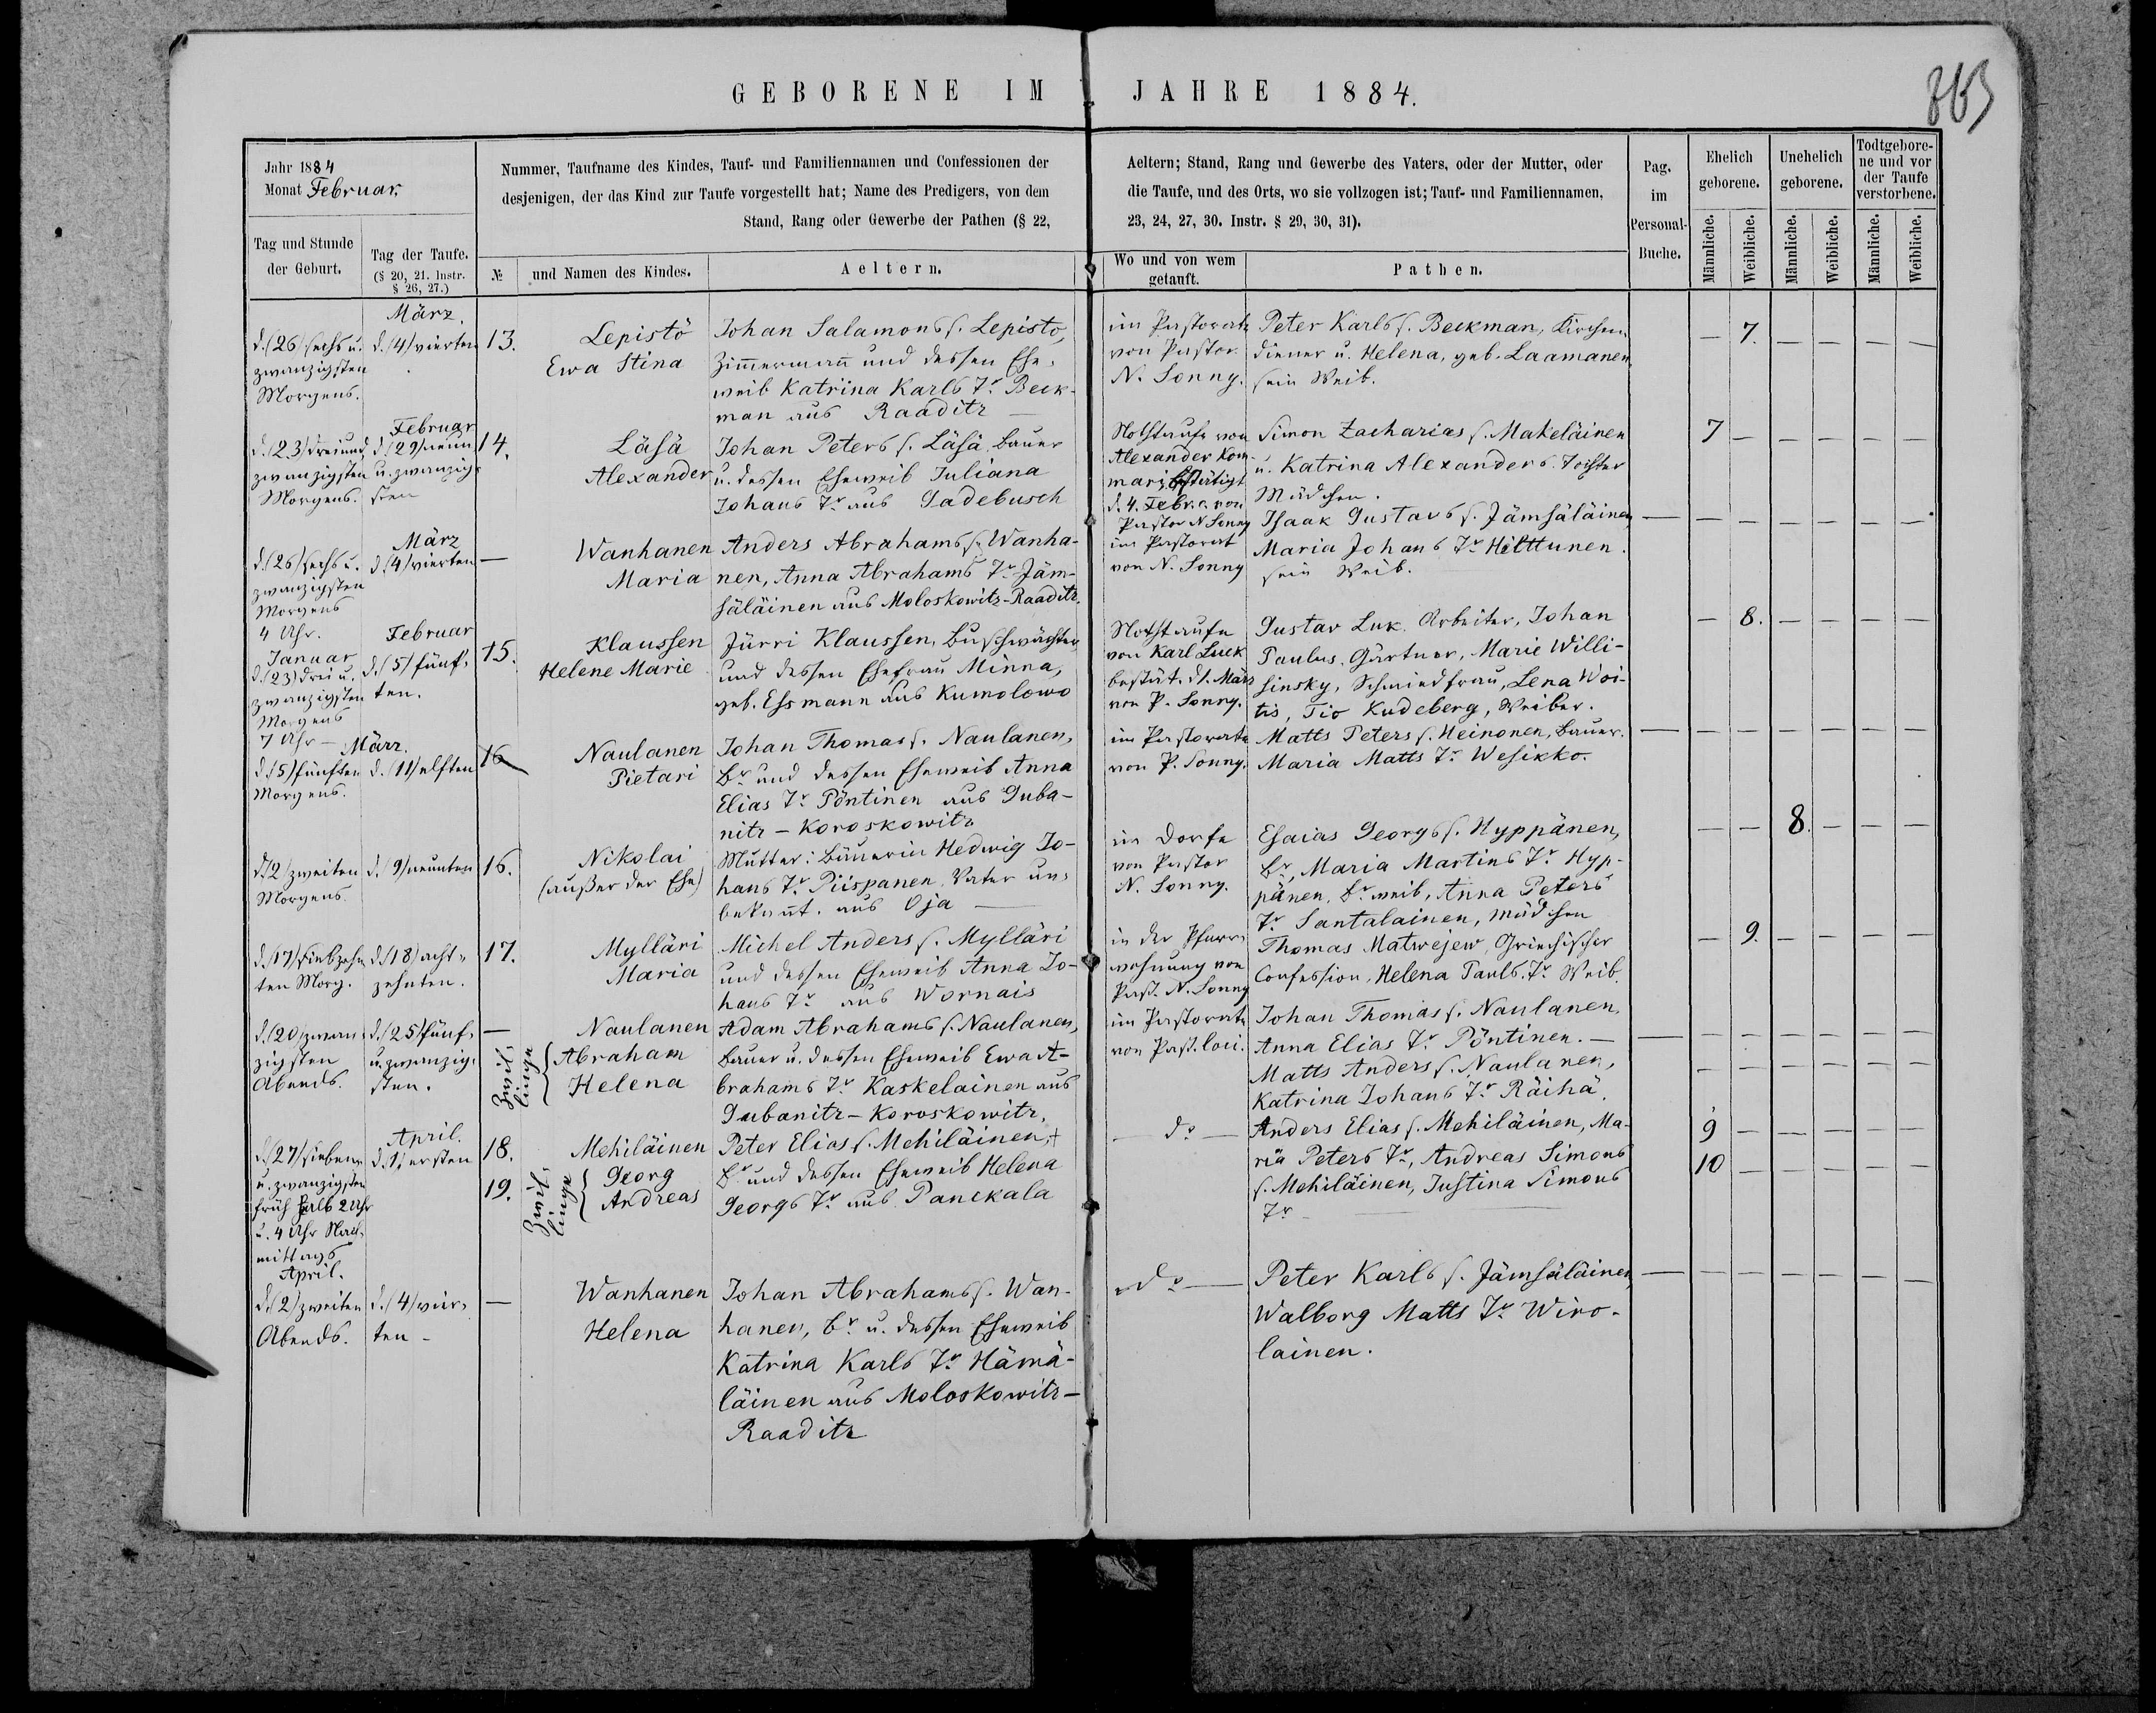 GEBORENE IM JAHRE 1884.
Jahr 1884
Monat Februar.
Nummer, Taufname des Kindes, Tauf- und Familiennamen und Confessionen der
desjenigen, der das Kind zur Taufe vorgestellt hat; Name des Predigers, von dem
Stand, Rang oder Gewerbe der Pathen (§ 22,
Aeltern; Stand, Rang und Gewerbe des Vaters, oder der Mutter, oder
die Taufe, und des Orts, wo sie vollzogen ist; Tauf- und Familiennamen,
23, 24, 27, 30. Instr. § 29, 30, 31).
Pag.
im
Personal-
Buche.
Ehelich
geborene.
Unehelich
geborene.
Todtgebore-
ne und vor
der Taufe
verstorbene.
Männliche.
Weibliche.
Männliche.
Weibliche.
Männliche.
Weibliche.
Tag und Stunde
der Geburt.
Tag der Taufe.
(§ 20, 21. Instr.
§ 26, 27.)
№
und Namen des Kindes.
Aeltern.
Wo und von wem
getauft.
Pathen.
d. (26) sechs u.
zwanzigsten
Morgens.
März.
d. (4) vierten
13.
Lepistö
Ewa Stina
Johan Salamons s. Lepisto,
Zimmermann und dessen Ehe-
weib Katriina Karls Tr Beck-
man aus Raaditz —
im Pastorate
von Pastor
N. Sonny.
Peter Karls s. Beckman, Kirchen-
diener u. Helena, geb. Laamanen,
sein Weib.
— 7. — — — —
d. (23) dreiund
zwanzigsten
Morgens.
Februar
d. (29) neun
u. zwanzig-
sten
14.
Läsä
Alexander
Johan Peters s. Läsä, Bauer
u. dessen Eheweib Juliana
Johans Tr aus Gadebusch
Nothtaufe von
Alexander Kom-
mari, bestätigt
d. 4. Febr. von
Pastor N Sonny
Simon Zacharias s. Makeläinen
u. Katrina Alexanders Tochter
Mädchen.
7 — — — — —
d. (26) sechs u.
zwanzigsten
Morgens
4 Uhr.
März
d. (4) vierten
—
Wanhanen
Maria
Anders Abrahams s. Wanha-
nen, Anna Abrahams Tr Jäm-
säläinen aus Moloskowitz-Raaditz.
im Pastorat
von N. Sonny
Isaak Gustavs s. Jämsäläinen
Maria Johans Tr Hilttunen.
sein Weib.
— — — — — — —
Januar
d. (23) drei u.
zwanzigsten
Morgens
7 Uhr —
Februar
d. (5) fünf-
ten.
15.
Klaussen
Helene Marie
Jürri Klaussen, Buschwächter
und dessen Ehefrau Minna,
geb. Essmann aus Kumolowo
Nothtaufe
von Karl Luck
bestät. d 1. März
von P. Sonny.
Gustav Luk. Arbeiter, Johan
Paulus, Gärtner, Marie Willi-
sinsky, Schmiedfrau, Lena Woi-
tis, Tio Kudeberg, Weiber.
— 8. — — — —
März.
d. (5) fünften
Morgens.
d. (11) elften
16
Naulanen
Pietari
Johan Thomas s. Naulanen,
Br und dessen Eheweib Anna
Elias Tr Pöntinen aus Guba-
nitz — Koroskowitz
im Pastorate
von P. Sonny.
Matts Peters s. Heinonen, Bauer.
Maria Matts Tr Wesikko.
— — — — — — —
d. (2) zweiten
Morgens.
d. (9) neunten
16.
Nikolai
(außer der Ehe)
Mutter: Bäuerin Hedwig Jo-
hans Tr Piispanen, Vater un-
bekannt. aus Oja —
im Dorfe
von Pastor
N. Sonny.
Esaias Georgs s. Hyppänen,
Br, Maria Martins Tr Hyp-
pänen, Br weib, Anna Peters
Tr Santalainen, Mädchen
— — 8. — — —
d. (17) siebzehn
ten Morg.
d. (18) acht-
zehnten.
17.
Mylläri
Maria
Michel Anders s. Mylläri
und dessen Eheweib Anna Jo-
hans Tr aus Wornais
in der Pfarr-
wohnung von
Past. N. Sonny
Thomas Matwejew, Griechischer
Confession, Helena Pauls. Tr Weib.
— 9. — — — —
d. (20) zwan-
zigsten
Abends.
d. (25) fünf-
u. zwanzig-
sten.
—
Zwil-
linge
Naulanen
Abraham
Helena
Adam Abrahams s. Naulanen,
Bauer u. dessen Eheweib Ewa A-
brahams Tr Kaskelainen aus
Gubanitz — Koroskowitz.
im Pastorate
von Past. loci.
Johan Thomas s. Naulanen,
Anna Elias Tr Pöntinen. —
Matts Anders s. Naulanen,
Katrina Johans Tr Räihä.
— — — — — — —
— — — — — —
d. (27) sieben
u. zwanzigsten
früh halb 2 Uhr
u. 4 Uhr Nach-
mittags
April.
d. (1) ersten
18.
19.
Zwil-
linge
Mehiläinen
Georg
Andreas
Peter Elias s. Mehiläinen,
Br und dessen Eheweib Helena
Georgs Tr aus Panckala
— do —
Anders Elias s. Mehiläinen, Ma-
ria Peters Tr, Andreas Simons
s. Mehiläinen, Justina Simons
Tr —
9 — — — — —
10 — — — — —
April.
d. (2) zweiten
Abends.
d. (4) vier-
ten —
—
Wanhanen
Helena
Johan Abrahams s. Wan-
hanen, Br u. dessen Eheweib
Katrina Karls Tr Hämä-
läinen aus Moloskowitz —
Raaditz
— do —
Peter Karls s. Jämsäläinen,
Walborg Matts Tr Wiro-
lainen.
— — — — — — —